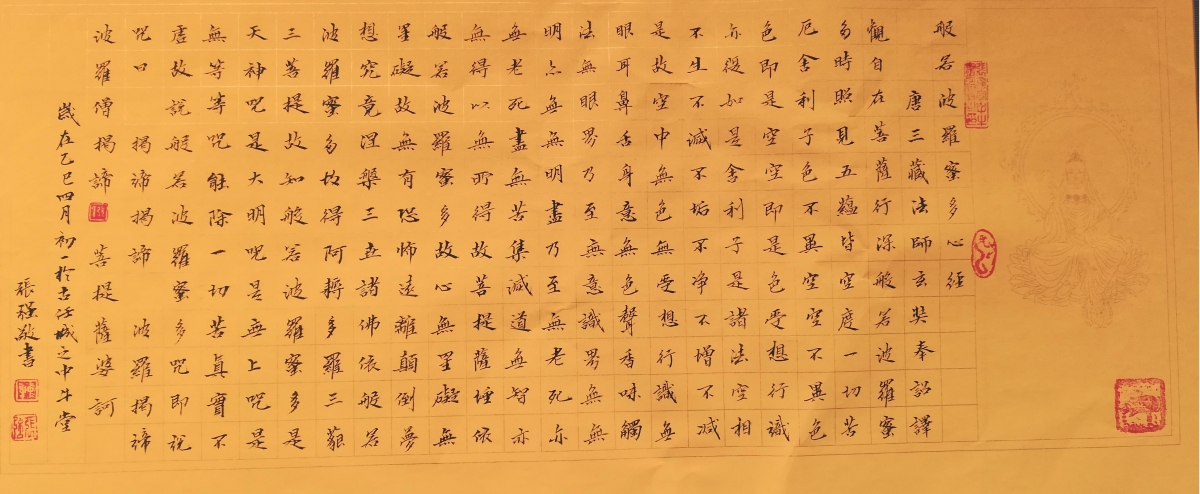 般若波羅蜜多心經
唐三藏法師玄奘奉詔譯
觀自在菩薩行深般若波羅蜜
多時照見五蘊皆空度一切苦
厄舍利子色不異空空不異色
色即是空空即是色受想行識
亦復如是舍利子是諸法空相
不生不滅不垢不净不增不減
是故空中無色無受想行識無
眼耳鼻舌身意無色聲香味觸
法無眼界乃至無意識界無無
明亦無無明盡乃至無老死亦
無老死盡無苦集滅道無智亦
無得以無所得故菩提薩埵依
般若波羅蜜多故心無罣礙無
罣礙故無有恐怖遠離顛倒夢
想究竟涅槃三世諸佛依般若
波羅蜜多故得阿耨多羅三藐
三菩提故知般若波羅蜜多是
大神呪是大明呪是無上呪是
無等等呪能除一切苦真實不
虛故說般若波羅蜜多呪即說
呪曰 揭諦揭諦 波羅揭諦
波羅僧揭諦 菩提薩婆訶
歲在乙巳四月初一於古任城之中牛堂
張強敬書